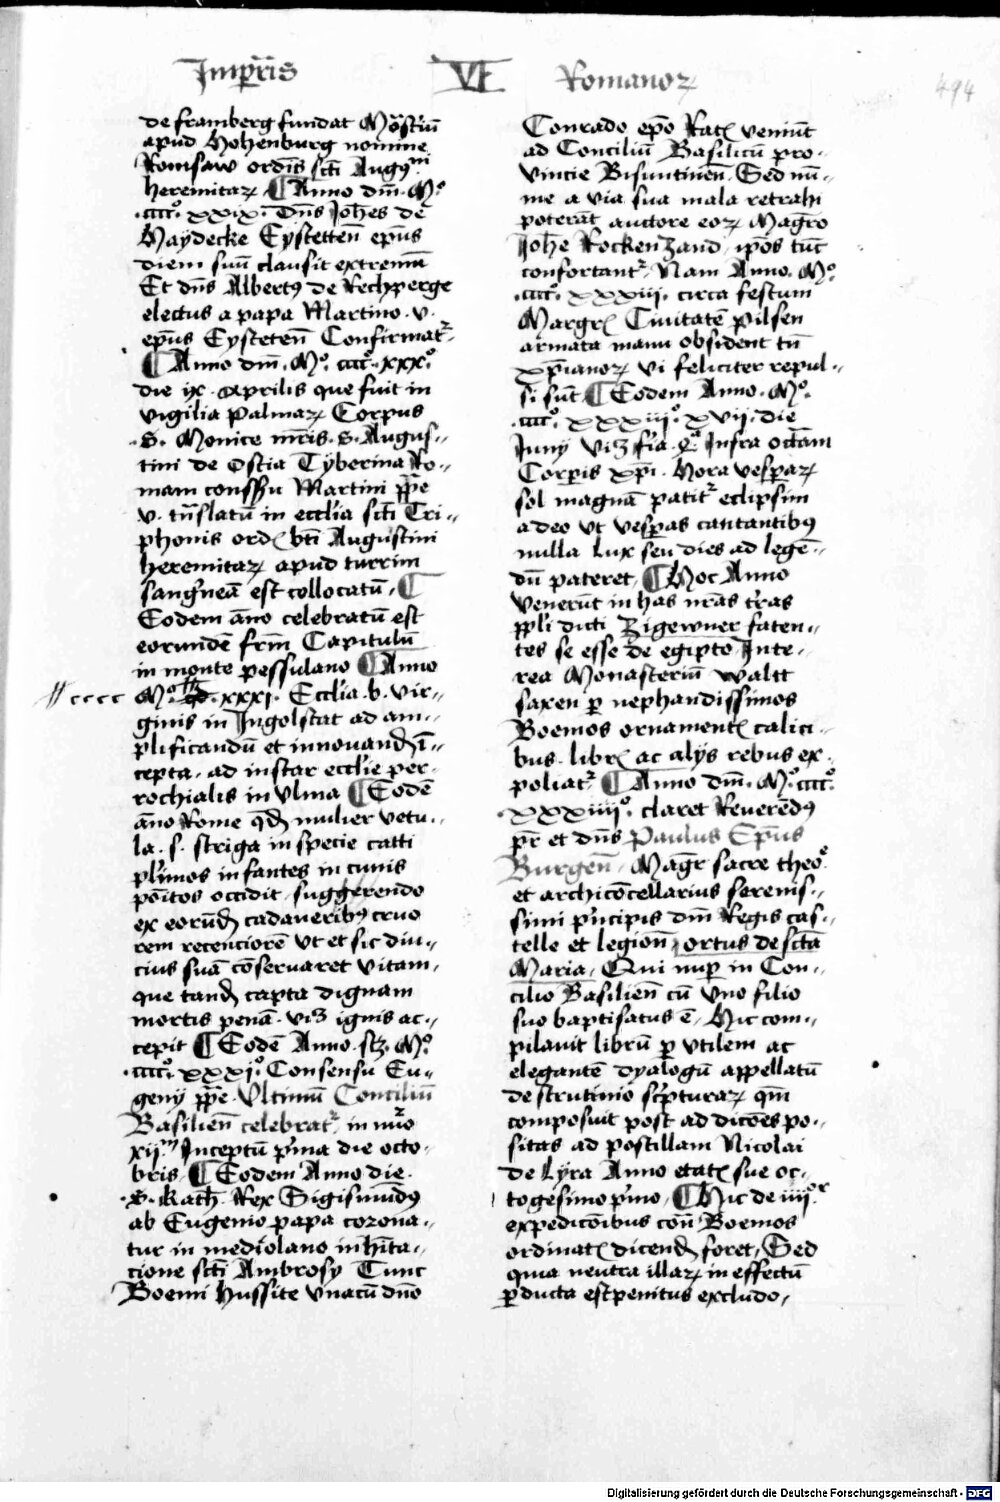 Imꝑr̄is VI Romanoꝝ 494
de framberg fundat Mōst̄iū
apud Hohenburg nomine
Romsaw ordīs scti Augꝰⁿⁱ
heremitaꝝ ¶ Anno dm̄. Mº
.ccccº. xxix. Dn̄s Joh̄es de
Haydecke Eystetten̄ ep̄us
diem suū clausit extremū
Et dn̄s Albertꝰ de Rechperge
electus a papa Martino .v.
ep̄us Eysteten̄ Confirmatᷣ
¶ Anno dm̄. Mº. ccccº. xxxº.
die ix. Aprilis que fuit in
vigilia palmaꝝ Corpus
.S. Monice mr̄is .S. Augus-
tini de Ostia Tyberina Ro-
mam consēsu Martini pp̄e
v. tn̄slatū in eccl̄ia scti Tri-
phonis ord̄ bt̄i Augustini
heremitaꝝ apud turrim
sangnēa est collocatū. ¶
Eodem āno celebratū est
eorundē frm̄ Capitulū
in monte pessulano ¶ Anno
// cccc Mº. xxxi. Eccl̄ia .b. vir-
ginis in Ingolstat ad am-
plificandū et innouand̄ ī-
cepta. ad instar eccl̄ie per-
rochialis in Vlma ¶ Eodē
āno Rome qd̄ mulier vetu-
la .s. striga in specie catti
pl'imos infantes in cunis
poītos occidit. suggerendo
ex eorūd̄ cadaueribꝰ cruo
rem recenciorē vt et sic diu-
cius suā cōseruaret vitam,
que tand̄ capta dignam
mortis penā. viꝫ ignis ac-
cepit ¶ Eodē Anno. sꝫ. Mº
.ccccº. xxxjº. Consensu Eu-
genij pp̄e. Vltimū Conciliū
Basilien̄ celebratᷣ. in nūo
xijᵐ Inceptū p'ma die octo-
bris. ¶ Eodem Anno die.
.S. Kath̄. Rex Sigismūdꝰ
ab Eugenio papa corona-
tur in mediolano in hīta-
cione scti Ambrosy Tunc
Boemi hussite vnacū dn̄o
Conrado ep̄o Rat̄ veniūt
ad Conciliū Basilicū pro-
vincie Bisuntinen̄. Sed nū-
me a via sua mala retrahi
poterāt auctore eoꝝ Magr̄o
Joh̄e Rockenzand ip̄os tūc
confortantᷣ. Nam Anno. Mº.
.ccccº. xxxiii. circa festum
Margr̄ Ciuitatē Pilsen
armata manu obsident tū
xp̄ianoꝝ vi feliciter repul-
si sūt ¶ Eodem Anno. Mº.
.ccccº. xxxiiiº. xvii. die
Juny viꝫ fīa. qª Infra octām
Corp̄is xp̄i. Hora vesꝑaꝝ
sol magnā patitᷣ eclipsim
adeo vt vesperas cantantibꝰ
nulla lux seu dies ad legē-
dū pateret. ¶ Hoc Anno
venerūt in has nr̄as tr̄as
pp̄li dicti Zigewner faten-
tes se esse de egipto. Inte-
rea Monasteriū Waltt
saxen ꝑ nephandissimos
Boemos ornament̄ calici-
bus. libr̄ ac alijs rebus ex-
poliatᷣ. ¶ Anno dm̄. Mº. ccccº.
.xxxiiijº. claret Reuerēdꝰ
pr̄ et dn̄s Paulus Ep̄us
Burgen̄. Magr̄ sacre theoº.
et archicōcellarius serenis-
simi p'ncipis dm̄ Regis cas-
telle et legion̄, ortus de scta
Maria, Qui nuꝑ in Con-
cilio Basilien̄ cū vno filio
suo baptisatus ē. Hic com-
pilauit librū ꝑ vtilem ac
elegantē dyalogū appellatū
de strutinio sc'pturaꝝ qm̄
composuit post addicōes po-
sitas ad postillam Nicolai
de Lyra Anno etat̄ sue oc-
togesimo p'mo. ¶ Hic de iiijᵒʳ
expedicōibus cont̄ Boemos
ordinat̄ dicend̄ foret, Sed
quia neutra illaꝝ in effectū
ꝑducta est penitus excludo,
Digitalisierung gefördert durch die Deutsche Forschungsgemeinschaft - DFG